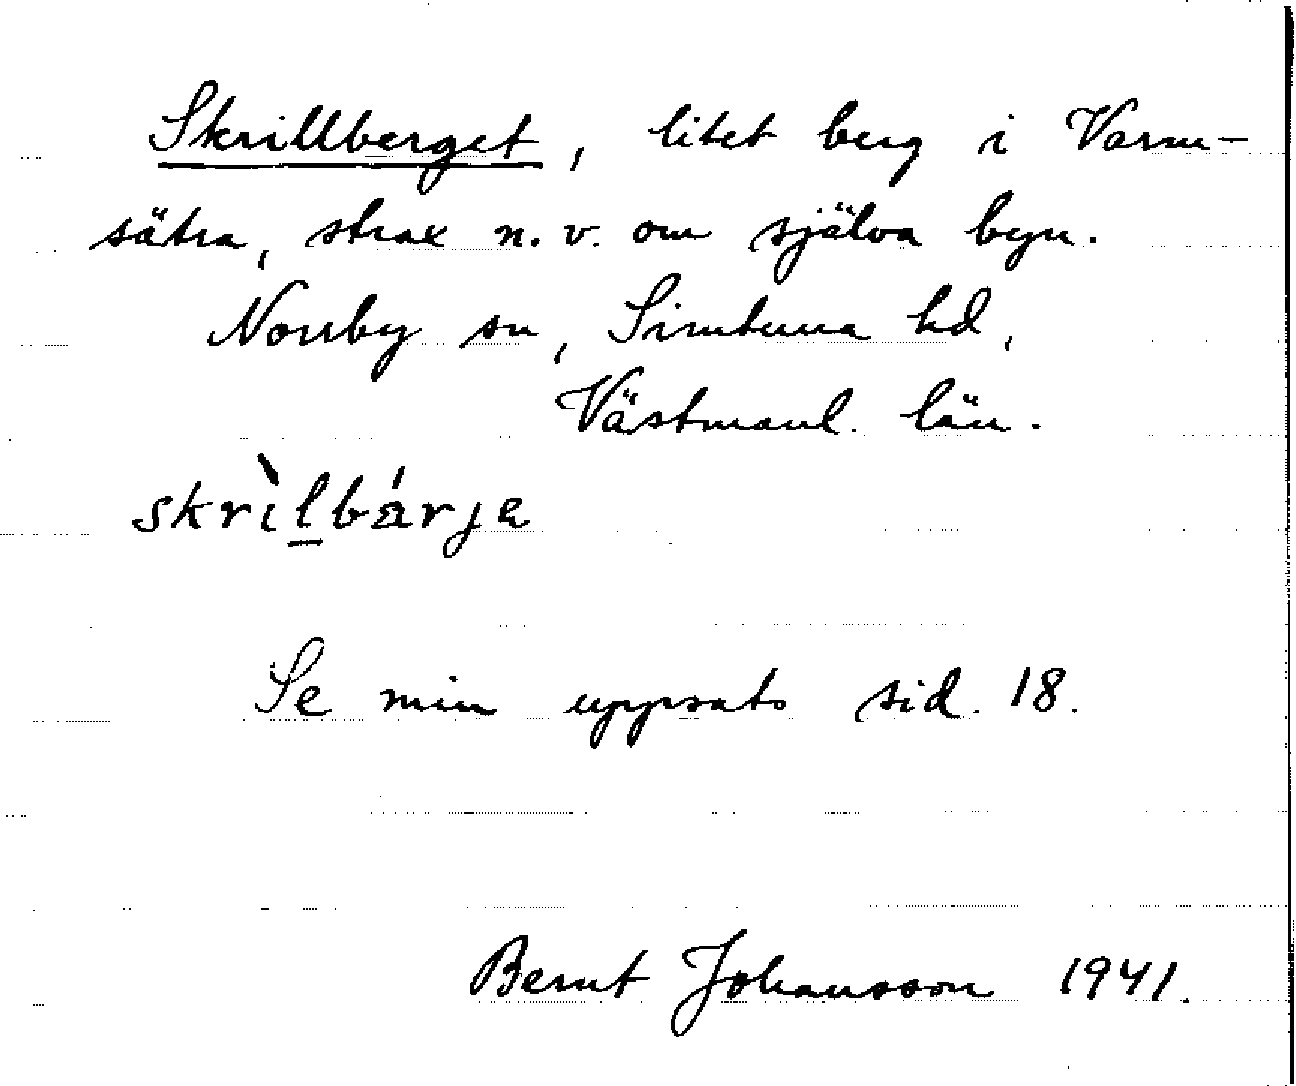 Skrillberget, litet berg i Varm-
sätra, strax n.v. om själva byn.
Norrby sn, Simtuna hd,
Västmanl. län.
skrìl̲bárje
Se min uppsats sid. 18.
Bernt Johansson 1941.